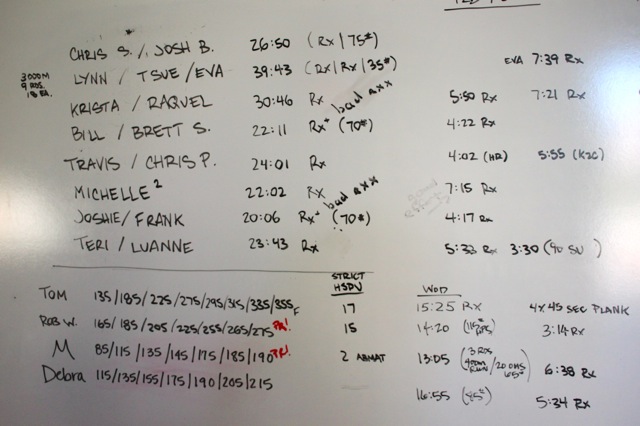 CHRIS S. / JOSH B. 26:50 (Rx / 75#)
3000M
9 RDS.
18 EA.
LYNN / TSUE / EVA 39:43 (Rx / Rx / 35#) EVA 7:39 Rx
KRISTA / RAQUEL 30:46 Rx 5:50 Rx 7:21 Rx
bad axx
BILL / BRETT S. 22:11 Rx+ (70#) 4:22 Rx
TRAVIS / CHRIS P. 24:01 Rx 4:02 (HR) 5:55 (K2C)
MICHELLE² 22:02 Rx 7:15 Rx
bad axx
JOSHIE / FRANK 20:06 Rx+ (70#) 4:17 Rx
TERI / LUANNE 23:43 Rx 5:33 Rx 3:30 (90 SU)
STRICT
HSPU WOD
TOM 135/185/225/275/295/315/335/355F 17 15:25 Rx 4x45 SEC PLANK
ROB W. 165/185/205/225/255/265/275 PR! 15 14:20 3:14 Rx
M 85/115/135/145/175/185/190 PR! 2 ABMAT 13:05 (3 RDS 400M RUN / 20 OHS 65#) 6:38 Rx
Debra 115/135/155/175/190/205/215 16:55 (85#) 5:34 Rx